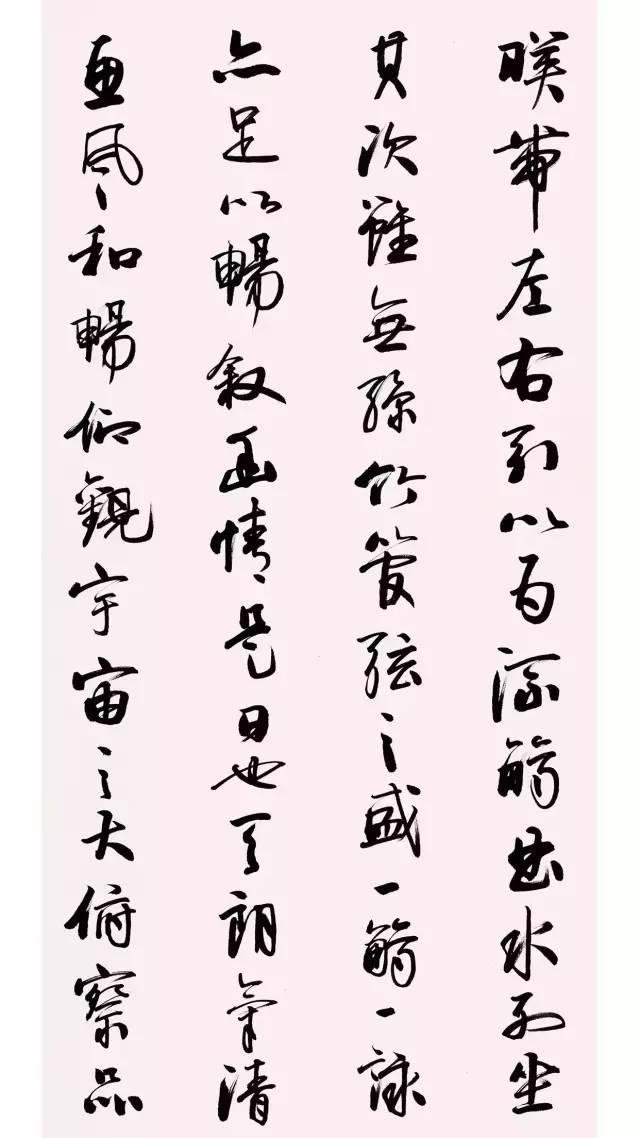 暎帶左右引以為流觴曲水列坐
其次雖無絲竹管弦之盛一觴一詠
亦足以暢敘幽情是日也天朗氣清
惠風和暢仰觀宇宙之大俯察品